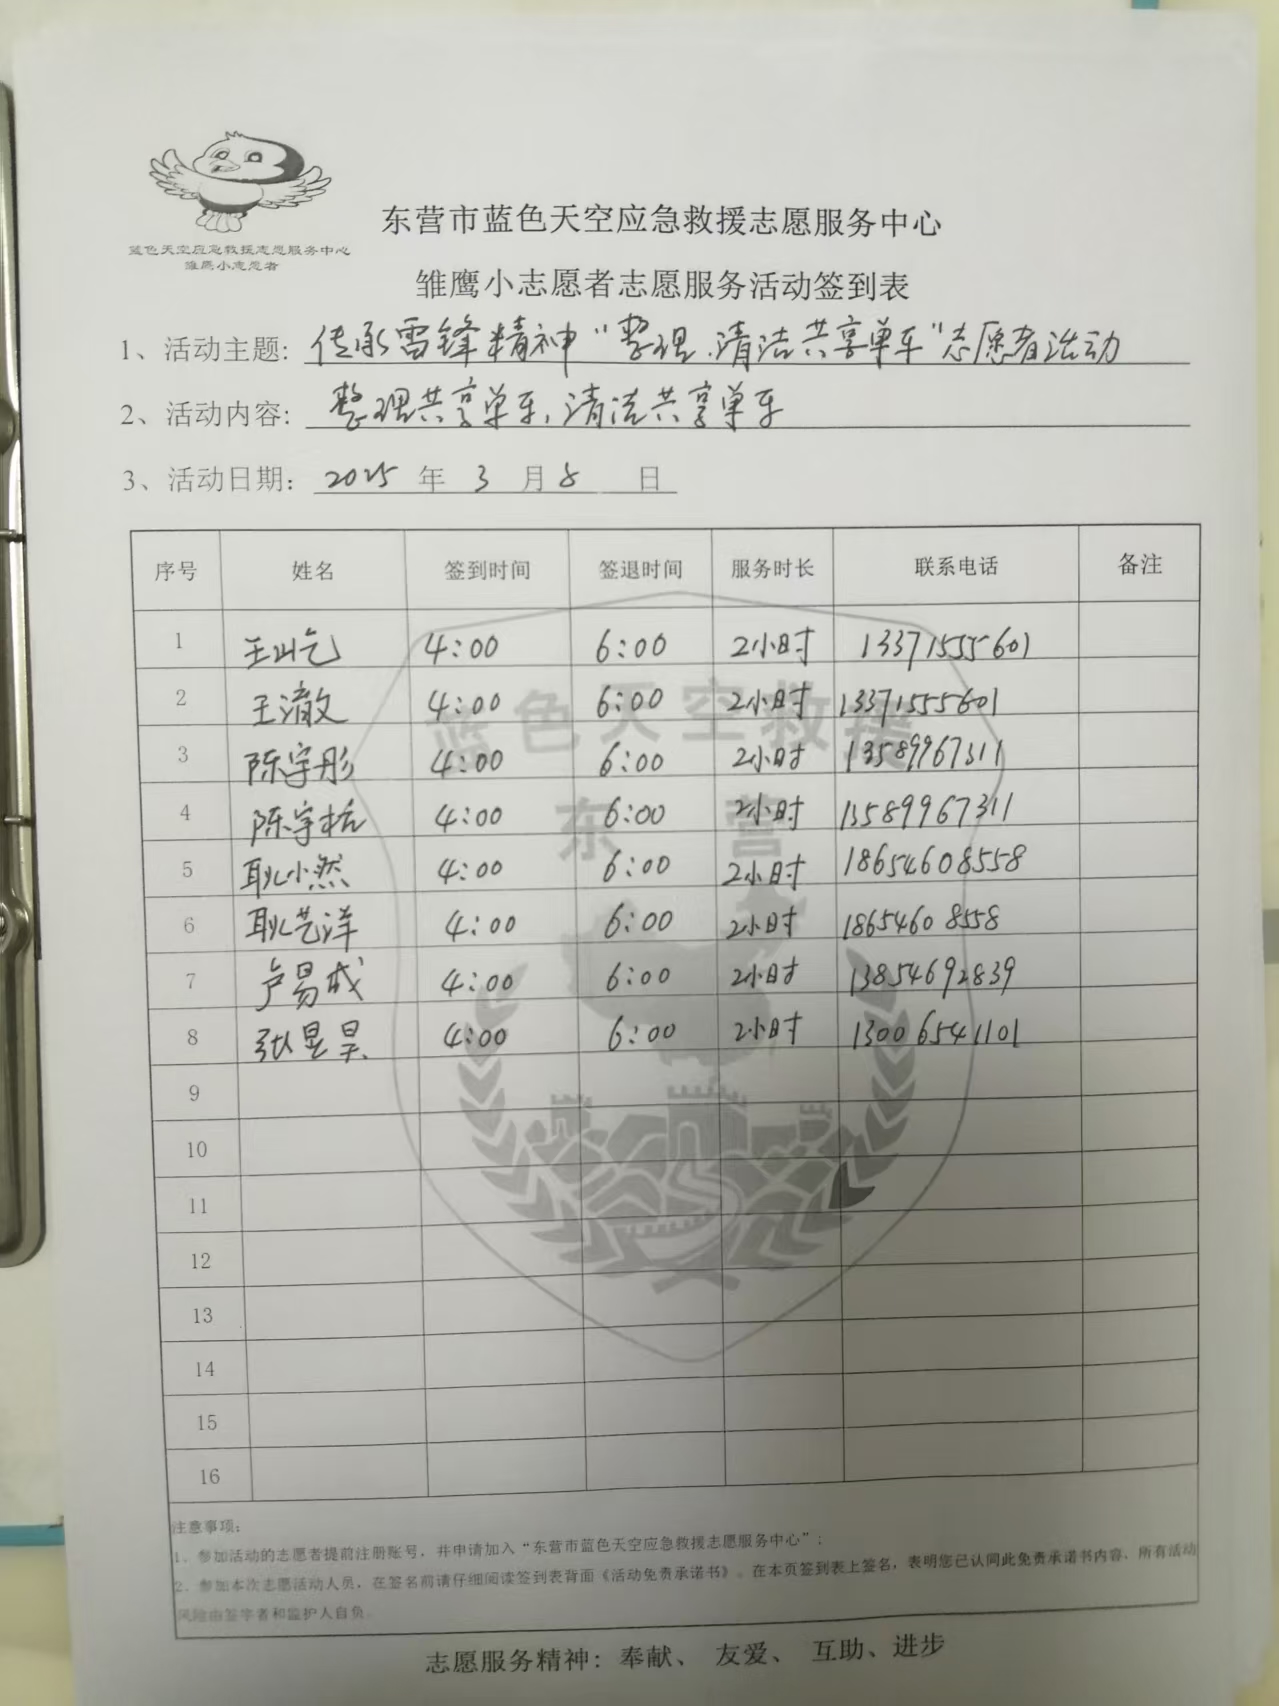 蓝色天空应急救援志愿服务中心
雏鹰小志愿者
东营市蓝色天空应急救援志愿服务中心
雏鹰小志愿者志愿服务活动签到表
1、活动主题: 传承雷锋精神“整理、清洁共享单车”志愿者活动
2、活动内容: 整理共享单车,清洁共享单车
3、活动日期: 2025 年 3 月 8 日
序号 姓名 签到时间 签退时间 服务时长 联系电话 备注
1 王屹 4:00 6:00 2小时 13371555601
2 王澈 4:00 6:00 2小时 13371555601
3 陈宇彤 4:00 6:00 2小时 13589967311
4 陈宇 4:00 6:00 2小时 13589967311
5 耿小然 4:00 6:00 2小时 18654608558
6 耿艺洋 4:00 6:00 2小时 18654608558
7 卢易成 4:00 6:00 2小时 13854692839
8 张昱昊 4:00 6:00 2小时 13006541101
9
10
11
12
13
14
15
16
蓝色天空救援
东营
注意事项:
1、参加活动的志愿者提前注册账号,并申请加入“东营市蓝色天空应急救援志愿服务中心”;
2、参加本次志愿活动人员,在签名前请仔细阅读签到表背面《活动免责承诺书》。在本页签到表上签名,表明您已认同此免责承诺书内容,所有活动
风险由签字者和监护人自负。
志愿服务精神:奉献、友爱、互助、进步